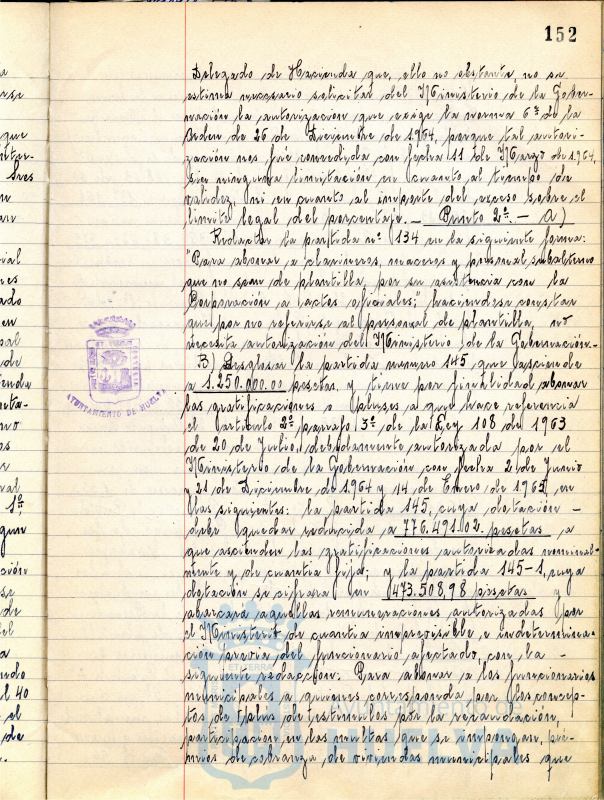 152
Delegado de Hacienda que, ello no obstante, no se
estima necesario solicitar del Ministerio de la Gober-
nación la autorización que exige la norma 6ª de la
Orden de 26 de Diciembre de 1.964, porque tal autori-
zación nos fué concedida con fecha 11 de Marzo de 1.964,
sin ninguna limitación en cuanto al tiempo de
validez, ni en cuanto al importe del exceso sobre el
límite legal del porcentaje.— Punto 2º.— A)
Redactar la partida nº 134 en la siguiente forma:
"Para abonar a clarineros, maceros y personal subalterno
que no sean de plantilla, por su asistencia con la
Corporación a actos oficiales", haciendose constar
que por no referirse al personal de plantilla, no
necesita autorización del Ministerio de la Gobernación.-
B) Desglosar la partida número 145, que asciende
a 1.250.000.00 pesetas, y tiene por finalidad abonar
las gratificaciones o pluses a que hace referencia
el artículo 2º parrafo 3º de la Ley 108 de 1.963
de 20 de Julio, debidamente autorizada por el
Ministerio de la Gobernación con fecha 2 de Junio
y 21 de Diciembre de 1.964 y 14 de Enero de 1.965, en
las siguientes: la partida 145, cuya dotación —
debe quedar reducida a 776.491.02. pesetas — a
que ascienden las gratificaciones autorizadas nominal-
mente y de cuantía fija; y la partida 145-1, cuya
dotación se cifrara en 473.508,98 pesetas y
abarcará aquellas remuneraciones autorizadas por
el Ministerio de cuantía imprevisible e indetermina-
ción previa del funcionario afectado, con la —
siguiente redacción: Para abonar a los funcionarios
municipales a quienes corresponda por los concep-
tos de plus de estimulos por la recaudación,
participación en las multas que se impongan, pre-
mios de cobranza de viviendas municipales que
AYUNTAMIENTO DE HUELVA
Ayuntamiento de
HUELVA